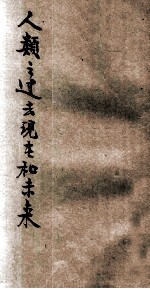 人類之过去現在和未来